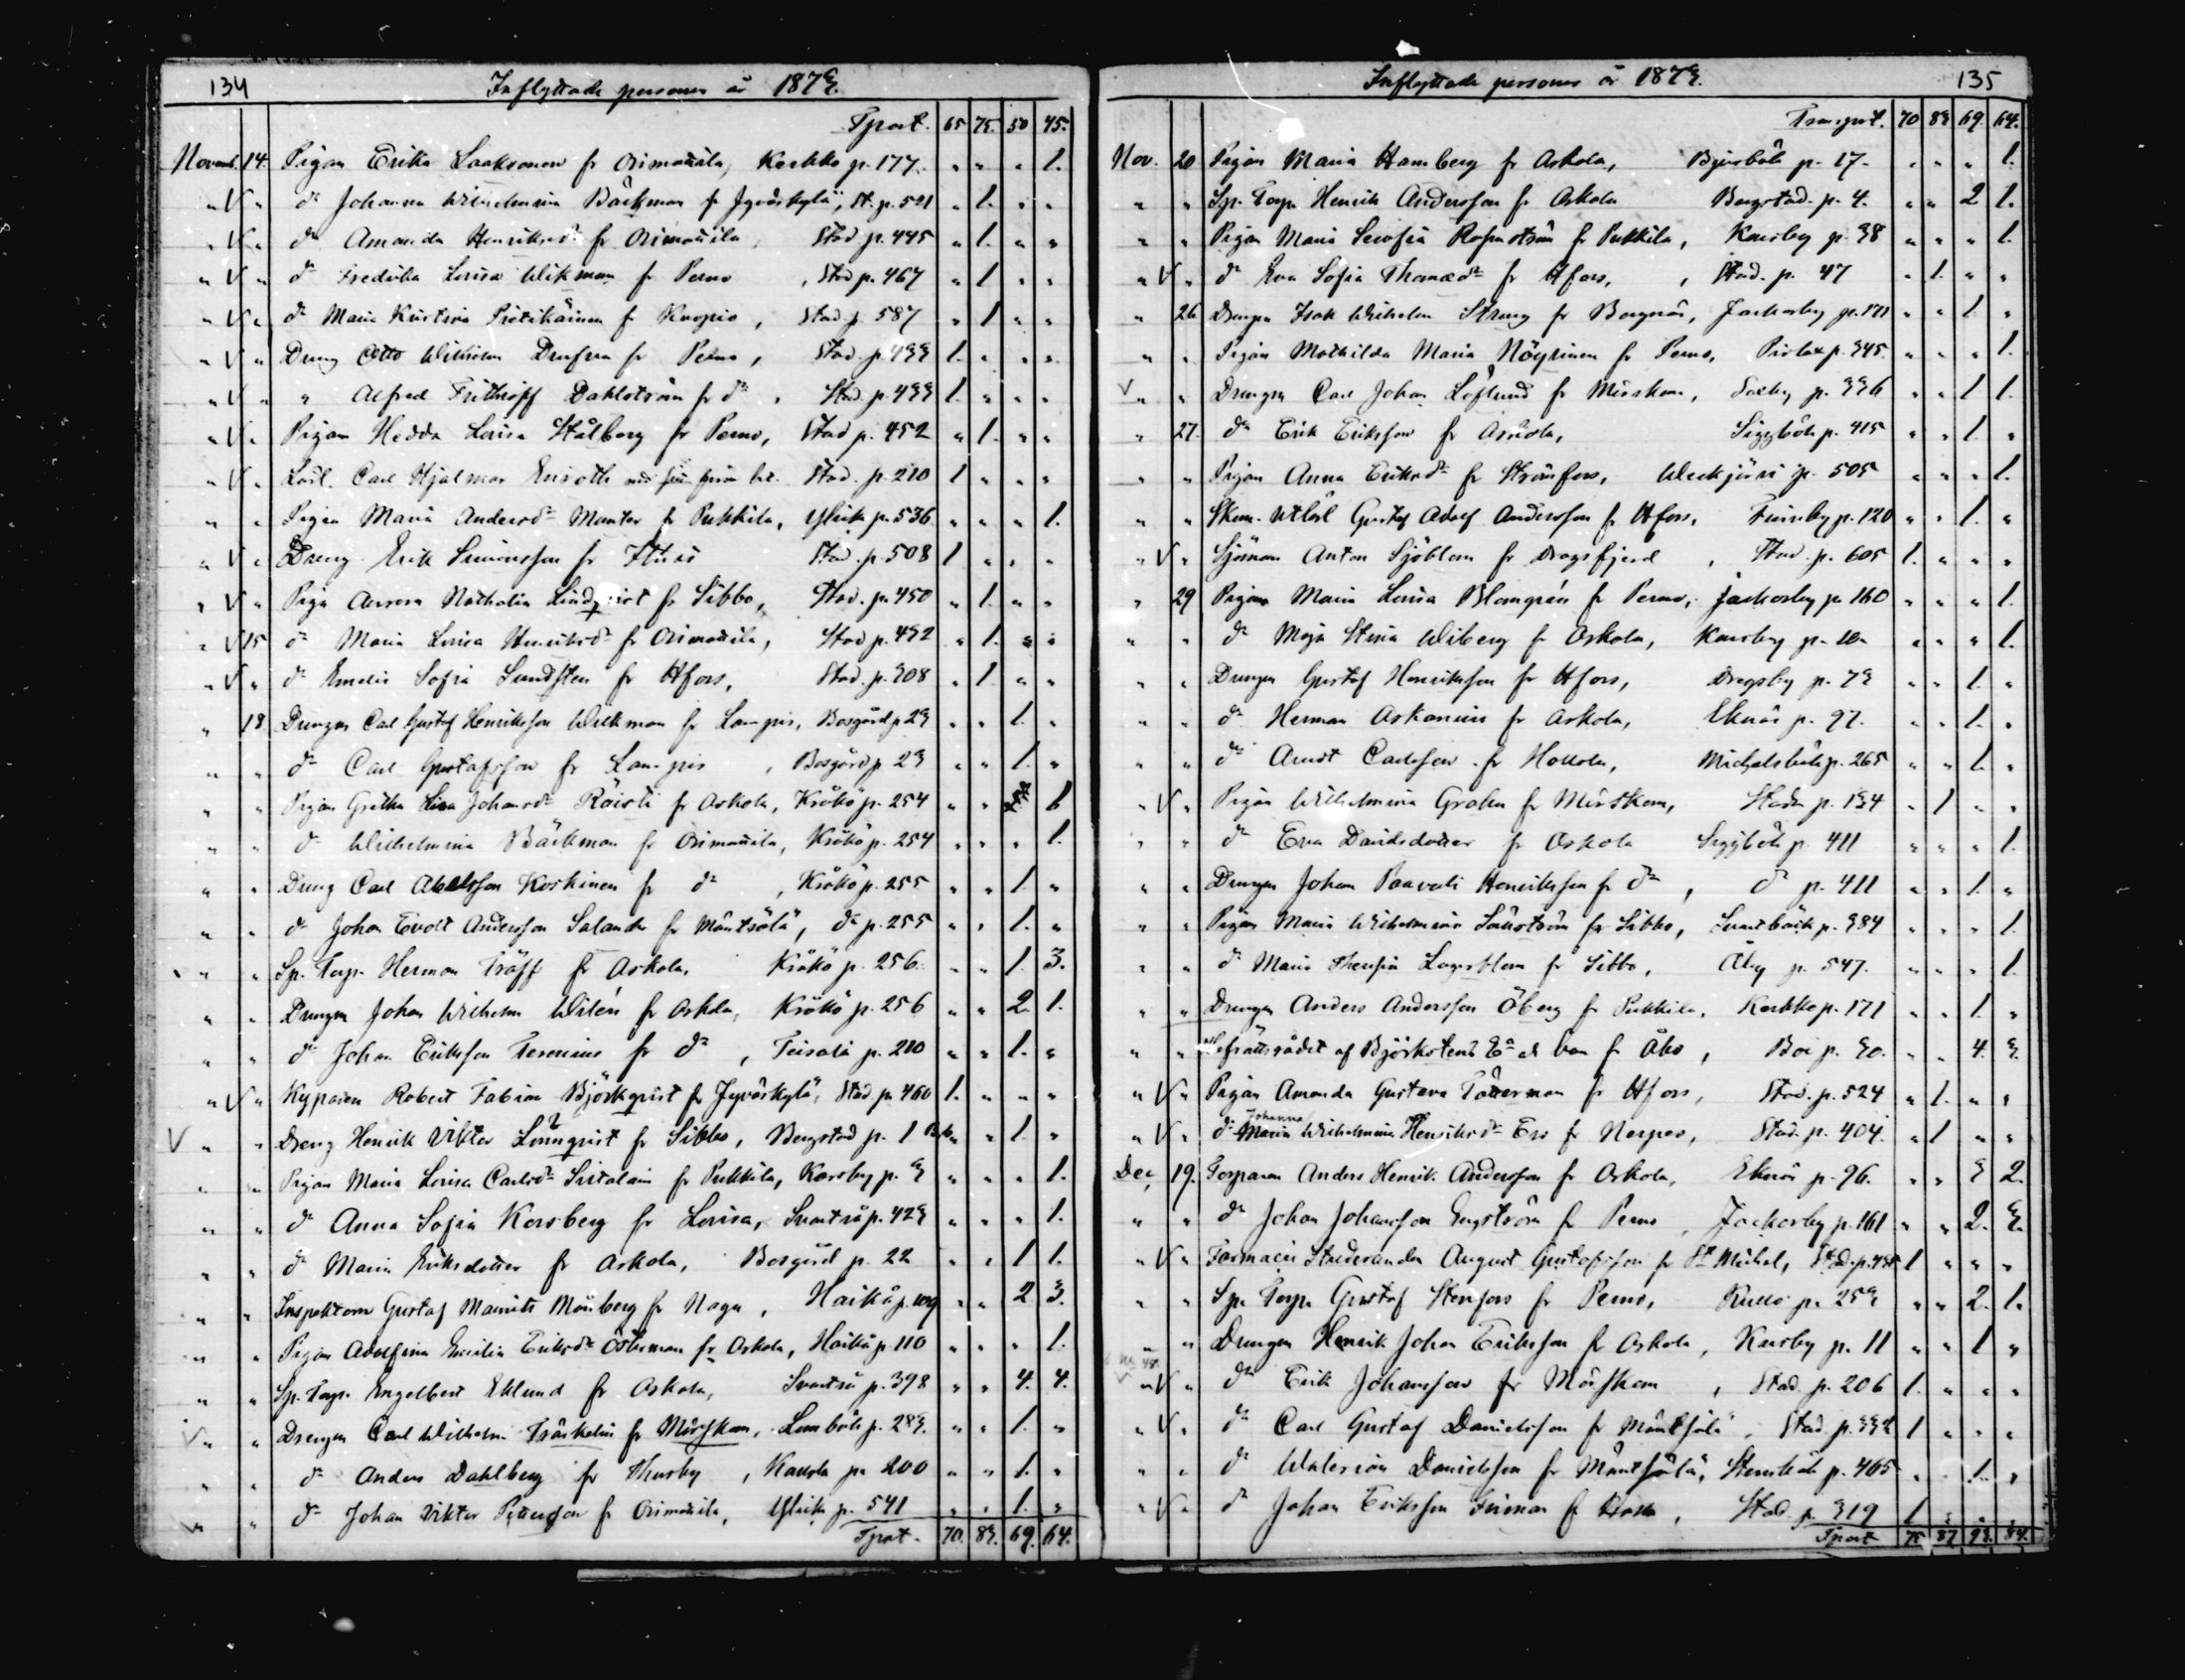 134
Inflyttade personer år 1873.
Tprt. 65 75. 50 45.
Novemb. 14. Pigan Erika Laaksonen fr Orimattila, Kerkko p. 177. " " " 1.
" V " dº Johanna Wilhelmina Bäckman fr Jyväskylä, St. p. 521 " 1. " "
" V " dº Amanda Henriksdr fr Orimattila, Stad p. 445 " 1. " "
" V " dº Fredrika Lovisa Wikman fr Perno, Stad p. 467 " 1 " "
" V " dº Maria Kristina Pietikäinen fr Kuopio, Stad. p. 587 " 1 " "
" V " Dreng Otto Wilhelm fr Perno, Stad. p. 433 1. " " "
" V " " Alfred Frithioff Dahlström fr dº, Stad. p. 433 1. " " "
" V " Pigan Hedda Lovisa Stålberg fr Perno, Stad p. 452 " 1. " "
" V " Carl Hjalmar Enroth Stad. p. 210 1 " " "
" " Pigan Maria Andersdr Manter fr Pukkila, p. 536 " " " 1.
" V " Dreng Erik Simonsson fr Stad. p. 508 1 " " "
" V " Piga Aurora Nathalia Lindqvist fr Sibbo, Stad. p. 450 " 1. " "
" V 15 dº Maria Lovisa Henriksdr fr Orimattila, Stad p. 432 " 1. " "
" V " dº Emelie Sofia Lundsten fr Hfors, Stad. p. 308 " 1 " "
" 18 Drengen Carl Gustaf Henriksson Wilkman fr Lampis, Bosgård p. 23 " " 1. "
" " dº Carl Gustafsson fr Lampis, Bosgård p. 23 " " 1. "
" " Pigan Gretha Lisa Johansdr Röisti fr Askola, Kråkö p. 254 " " 1
" " dº Wilhelmina Bäckman fr Orimattila, Kråkö p. 254 " " " 1.
" " Dreng Carl Abelsson Koskinen fr dº, Kråkö p. 255 " " 1. "
" " dº Johan Evolt Andersson Salander fr Mäntsälä, dº p. 255 " " 1. "
" " Sp. Torp. Herman Träff fr Askola, Kråkö p. 256. " " 1. 3.
" " Drengen Johan Wilhelm Wilén fr Askola, Kråkö p. 256 " " 2. 1.
" " dº Johan Eriksson fr dº, Teisala p. 210 " " 1. "
" V " Kyparen Robert Fabian Björkqvist fr Jyväskylä, Stad p. 460 1. " " "
V " " Dreng Henrik Viktor Lönnqvist fr Sibbo, Bergstad p. 1 " " 1. "
" " Pigan Maria Lovisa Carlsdr fr Pukkila, Karsby p. 3 " " " 1.
" " dº Anna Sofia Korsberg fr Lovisa, Svartså p. 423 " " " 1.
" " dº Maria Eriksdotter fr Askola, Bosgård p. 22 " " 1 1.
" " Inspektorn Gustaf Mauritz Mönberg fr Nagu, Haikå p. 109 " " 2 3.
" " Pigan Adolfina Emilia Eriksdr Österman fr Askola, Haikå p. 110 " " " 1.
" " Sp. Torp. Engelbert Eklund fr Askola, Svartså p. 398 " " 4. 4.
V " " Drengen Carl Wilhelm Träskelin fr Mörskom, p. 283. " " 1. "
" " dº Anders Dahlberg fr Thusby, Karsta p. 200 " " 1. "
" " dº Johan Viktor Petterson fr Orimattila, p. 541 " " 1. "
Tprt. 70. 83. 69. 64.
Inflyttade personer år 1873.
135
Transport. 70 83 69. 64.
Nov. 20 Pigan Maria Hamberg fr Askola, Bjursböle p. 17. " " " 1.
" " Sp. Torp. Henrik Andersson fr Askola Bergstad. p. 4. " " 2 1.
" " Pigan Maria Serafia fr Pukkila, Karsby p. 38 " " " 1.
" V " dº Eva Sofia Thomasdr fr Hfors, Stad. p. 47 " 1. " "
" 26 Drengen Isak Wilhelm Streng fr Borgnäs, Jackarby p. 171 " " 1 "
" " Pigan Mathilda Maria Nöyrinen fr Perno, Pirlax p. 345. " " " 1.
V " " Drengen Carl Johan Löflund fr Mörskom, Saxby p. 336 " " 1 1.
" 27. dº Erik Eriksson fr Askola, Siggböle p. 415 " " 1. "
" " Pigan Anna Eriksdr fr Strömfors, Weckjärvi p. 505 " " " 1.
" " Gustaf Adolf Andersson fr Hfors, Finnby p. 120 " " 1. "
" V " Sjöman Anton Sjöblom fr Dragsfjerd, Stad. p. 605 1. " " "
" 29 Pigan Maria Lovisa Blomqvist fr Perno, Jackarby p. 160 " " " 1.
" " dº Maja Stina Wiberg fr Askola, Karsby p. " " " 1.
" " Drengen Gustaf Henriksson fr Hfors, Dregsby p. 73 " " 1. "
" " dº Herman Askanius fr Askola, Eknäs p. 97. " " 1. "
" " dº Arndt Carlsson fr Hollola, Michelsböle p. 265 " " 1. "
" V " Pigan Wilhelmina Grahn fr Mörskom, Staden p. 134 " 1 " "
" " dº Eva Davidsdotter fr Askola Siggböle p. 411 " " " 1.
" " Drengen Johan Paavali Henriksson fr dº, dº p. 411 " " 1. "
" " Pigan Maria Wilhelmina fr Sibbo, Svartbäck p. 384 " " " 1.
" " dº Maria Lagerblom fr Sibbo, Åby p. 547. " " " 1.
" " Drengen Anders Andersson Öberg fr Pukkila, Kerkko p. 171 " " 1. "
" " Hofrättsrådet af Björksten fr Åbo, Boe p. 30. " " 4. 3.
" V " Pigan Amanda Gustava Tötterman fr Hfors, Stad. p. 524 " 1. " "
" V " dº Maria Johanna Wilhelmina Henriksdr Ers fr Nerpes, Stad. p. 404. " 1 " "
Dec. 19. Torparen Anders Henrik Andersson fr Askola, Eknäs p. 96. " " 3 2.
" " dº Johan Johansson Engström fr Perno, Jackarby p. 161 " " 2. 3.
" V " Farmacie Studeranden August Gustafsson fr St Michel, Stad. p. 1 " " "
" " Sp. Torp. Gustaf Stenfors fr Perno, Kullo p. 253 " " 2. 1.
" " Drengen Henrik Johan Eriksson fr Askola, Karsby p. 11 " " 1 "
" V " dº Erik Johansson fr Mörskom, Stad. p. 206 1. " " "
" V " dº Carl Gustaf Danielsson fr Mäntsälä, Stad. p. 332 1 " " "
" " dº Walerian Danielsson fr Mäntsälä, Stensböle p. 465 " " 1. "
" V " dº Johan Eriksson fr Stad. p. 319 1 " " "
Tprt 75 87 93. 84.